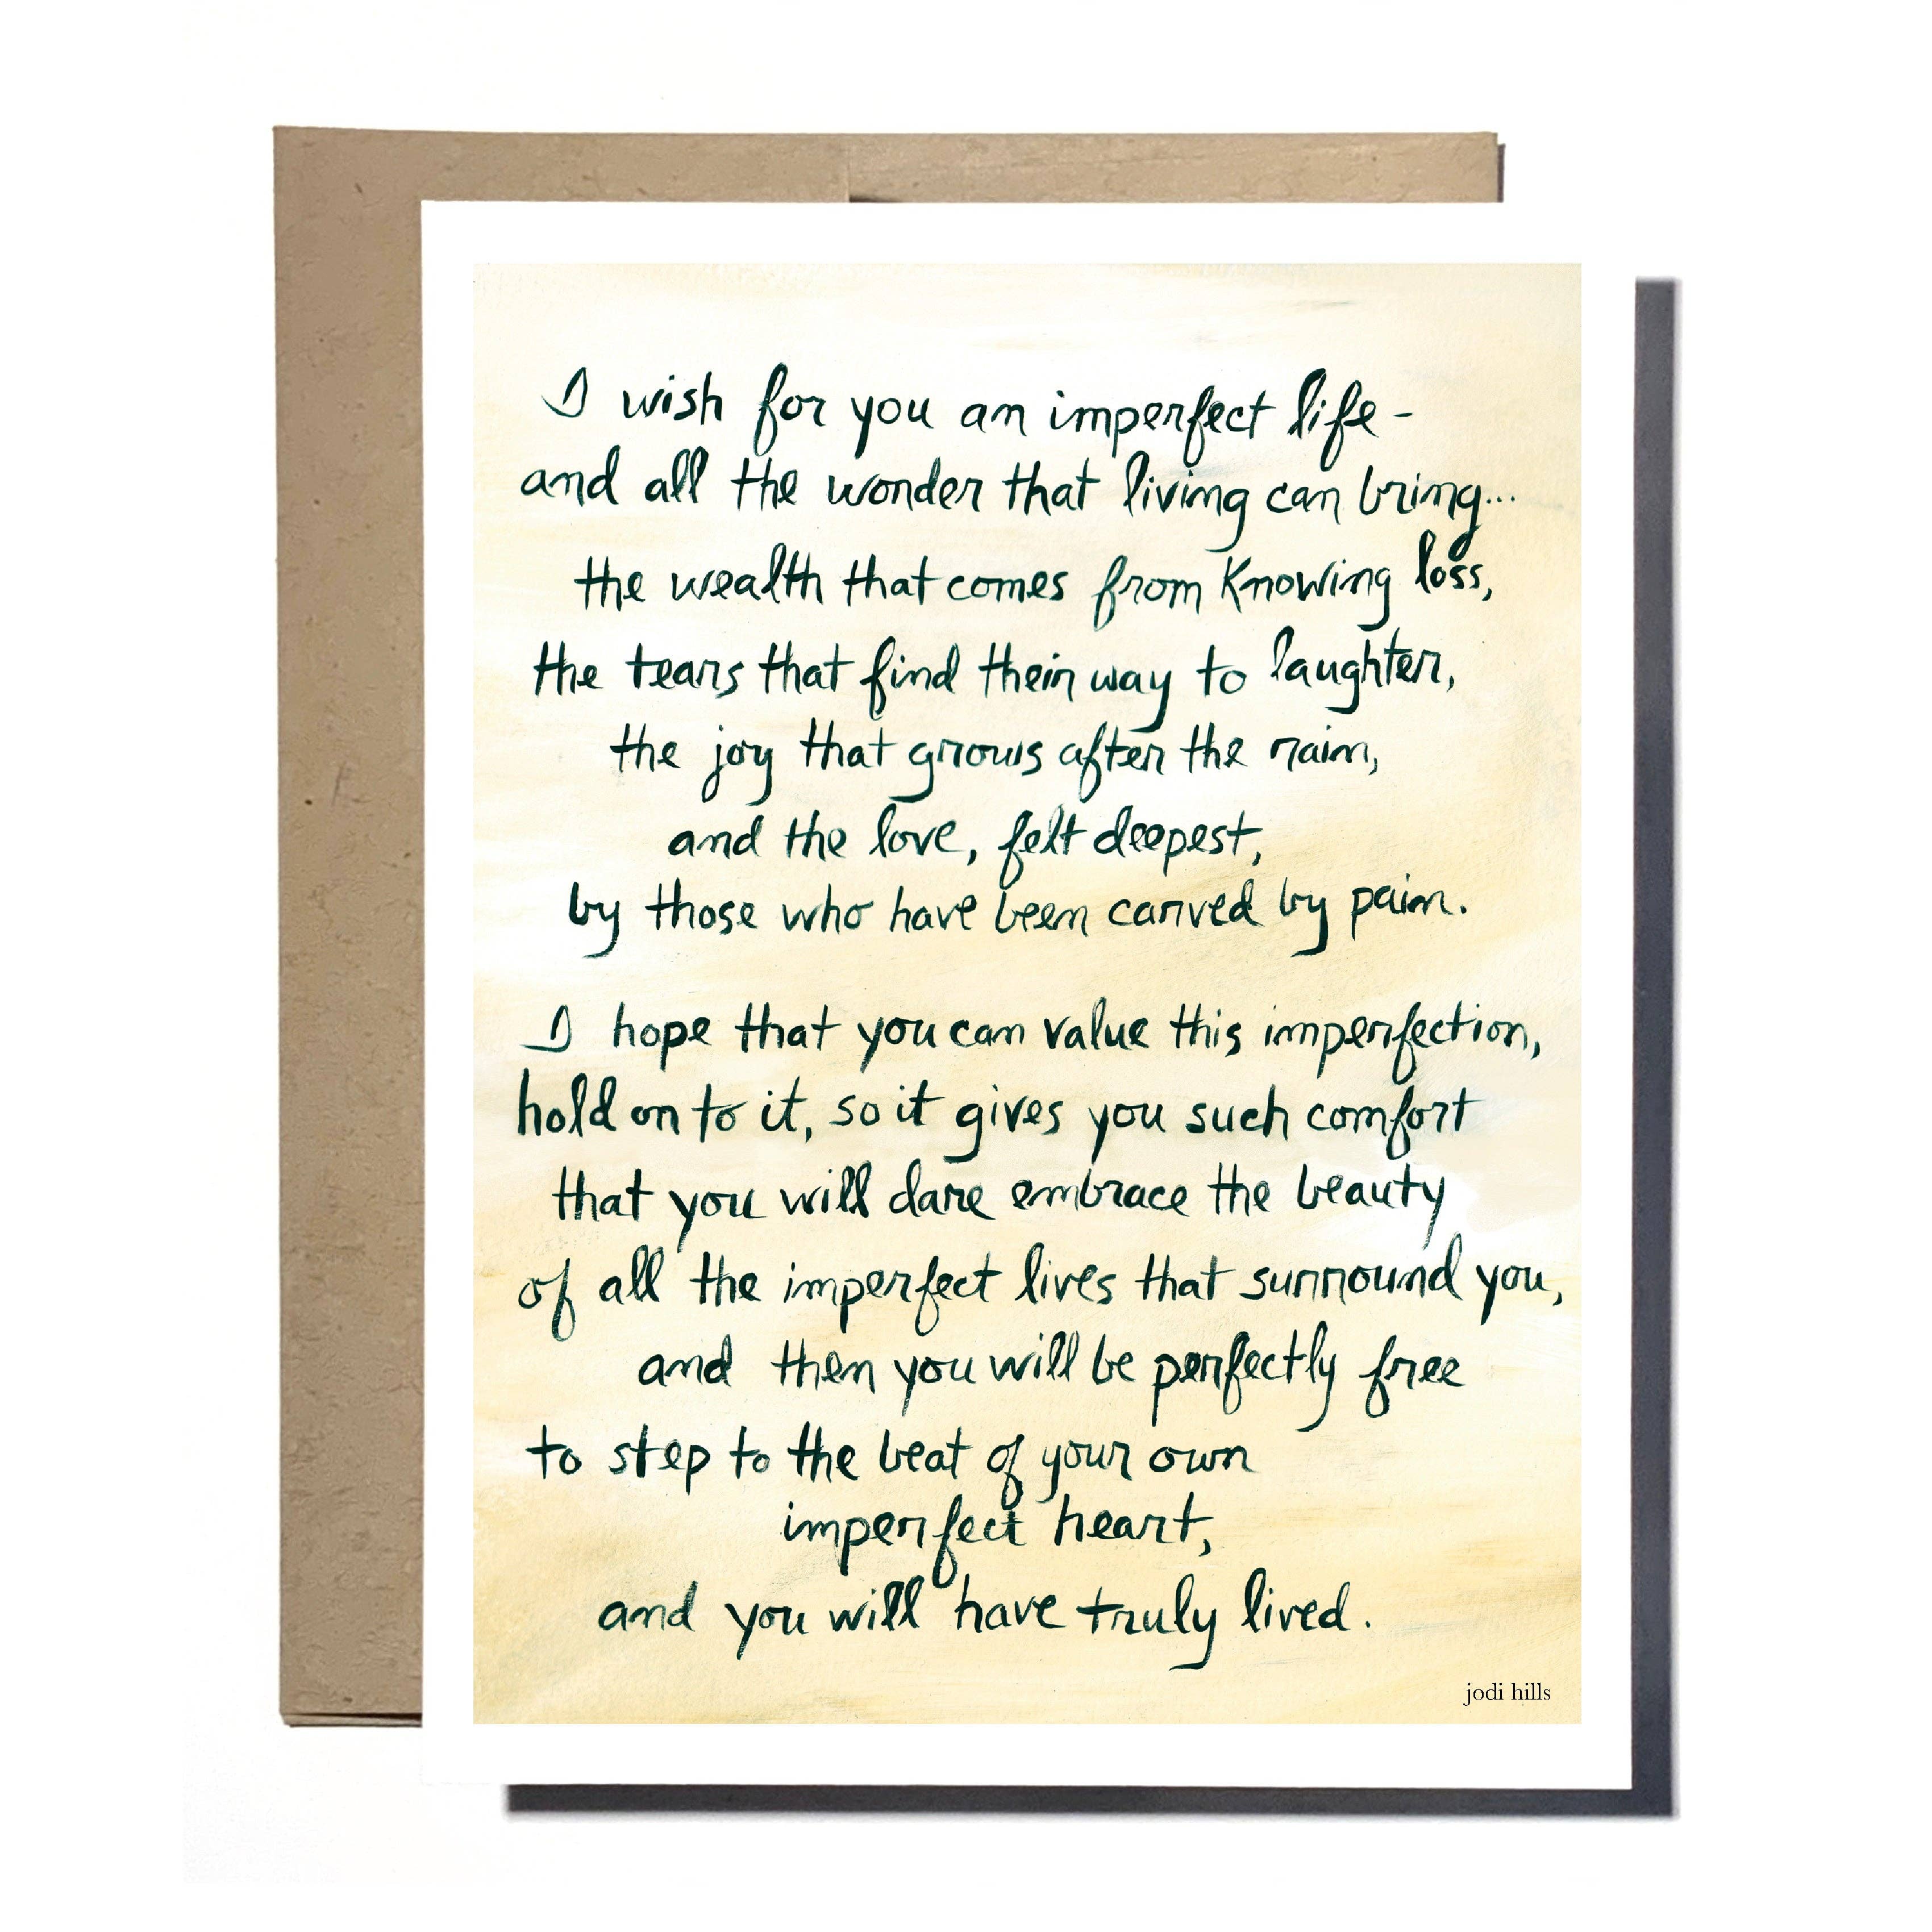 I wish for you an imperfect life -
and all the wonder that living can bring...
the wealth that comes from knowing loss,
the tears that find their way to laughter,
the joy that grows after the rain,
and the love, felt deepest,
by those who have been carved by pain.
I hope that you can value this imperfection,
hold on to it, so it gives you such comfort
that you will dare embrace the beauty
of all the imperfect lives that surround you,
and then you will be perfectly free
to step to the beat of your own
imperfect heart,
and you will have truly lived.
jodi hills